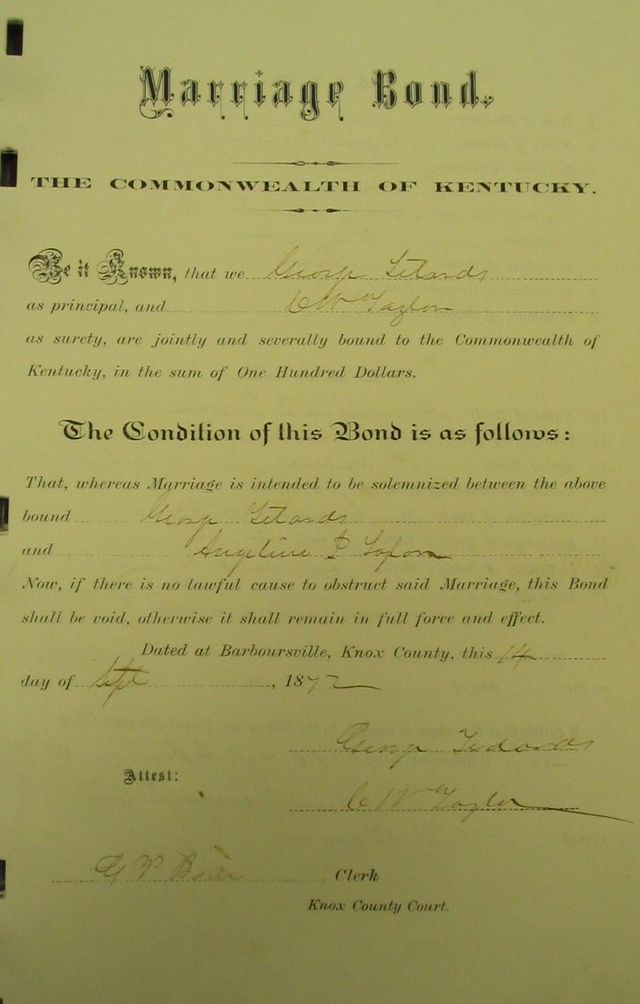 Marriage Bond.
THE COMMONWEALTH OF KENTUCKY.
Be it Known, that we George
as principal, and C W Taylor
as surety, are jointly and severally bound to the Commonwealth of
Kentucky, in the sum of One Hundred Dollars.
The Condition of this Bond is as follows:
That, whereas Marriage is intended to be solemnized between the above
bound George
and Angeline
Now, if there is no lawful cause to obstruct said Marriage, this Bond
shall be void, otherwise it shall remain in full force and effect.
Dated at Barboursville, Knox County, this 14
day of Sept, 1872
George
Attest:
C W Taylor
G Clerk
Knox County Court.